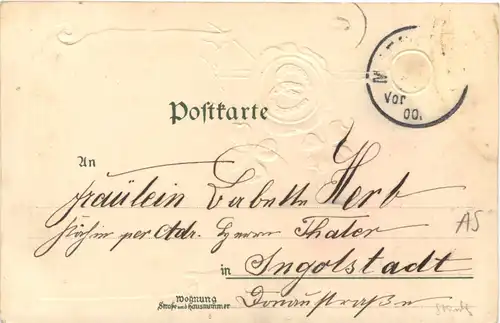 M
Vor
00.
Postkarte
An
Fräulein Babette Herb
Köchin per Adr. Herrn Thaler
in Ingolstadt
Wohnung
Straße und Hausnummer
Donaustraße
AS